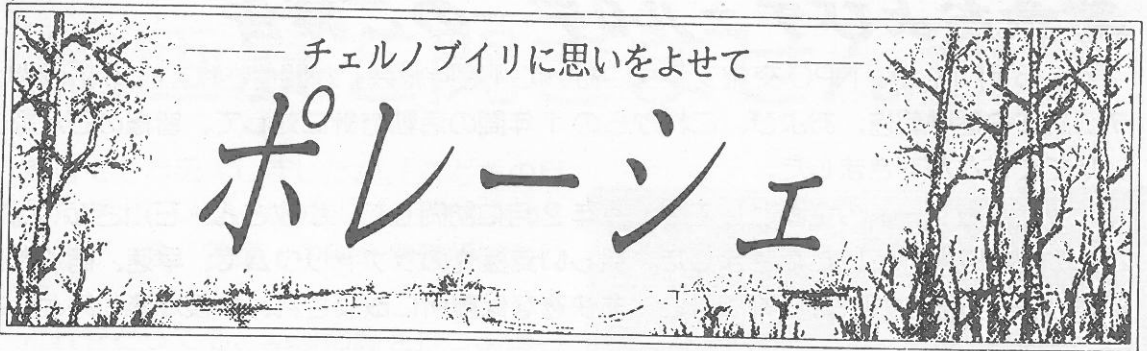 チェルノブイリに思いをよせて
ポレーシェ